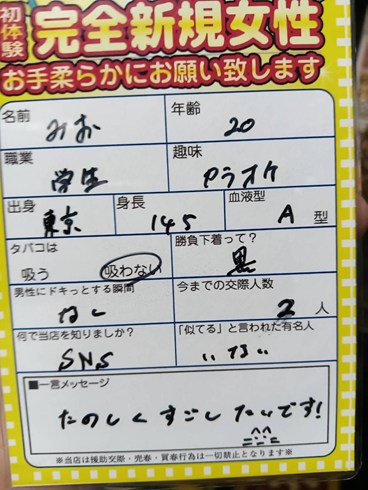 初体験
完全新規女性
お手柔らかにお願い致します
名前 みお 年齢 20
職業 学生 趣味 カラオケ
出身 東京 身長 145 血液型 A 型
タバコは 吸う 吸わない 勝負下着って? 黒
男性にドキっとする瞬間 なし 今までの交際人数 2 人
何で当店を知りましたか? SNS 「似てる」と言われた有名人 いない
■一言メッセージ
たのしくすごしたいです!
※当店は援助交際・売春・買春行為は一切禁止となります※